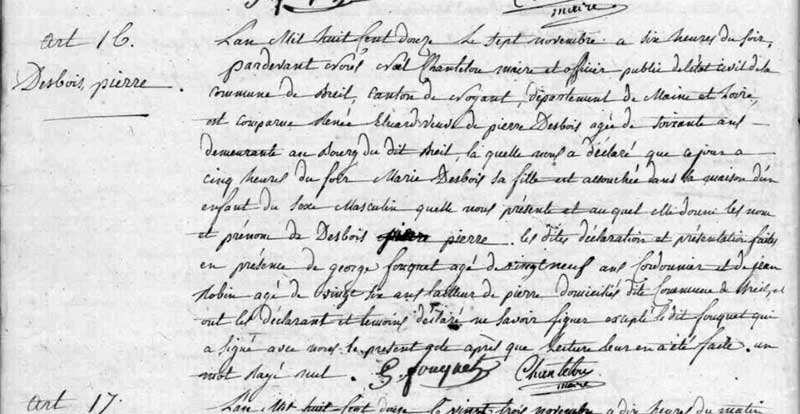 maire
art 16.
Desbois, pierre.
Lan Mil huit Cent douze Le Sept novembre a six heures du soir,
pardevant nous Chantelou maire et officier public de letat civil de la
commune de Breil, canton de noyant, département de Maine et Loire,
est comparue Renée Eluard veuve de pierre Desbois agée de soixante ans
demeurante au Bourg du dit Breil, la quelle nous a déclaré que ce jour a
cinq heures du soir Marie Desbois sa fille est accouchée dans sa maison dun
enfant du sexe Masculin quelle nous présente et au quel elle donne les nom
et prénom de Desbois pierre. les dites déclaration et présentation faites
en présence de george fouquet agé de vingt neuf ans Cordonnier et de jean
Robin agé de vingt six ans tailleur de pierre domiciliés dite Commune de Breil, et
ont les déclarant et temoins déclaré ne savoir signer excepté le dit fouquet qui
a signé avec nous le present acte apres que lecture leur en a été faite. un
mot Rayé nul. G. fouquet Chantelou
maire
art 17.
Lan Mil huit Cent douze le vingt trois novembre a dix heures du matin